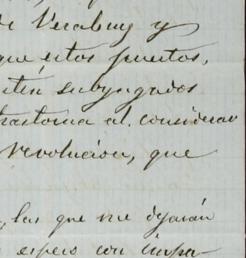 de Veracruz y
que estos puertos,
estén subyugados
trastorna al considerar
revolucion, que
, las que me dejarán
espero con impa-